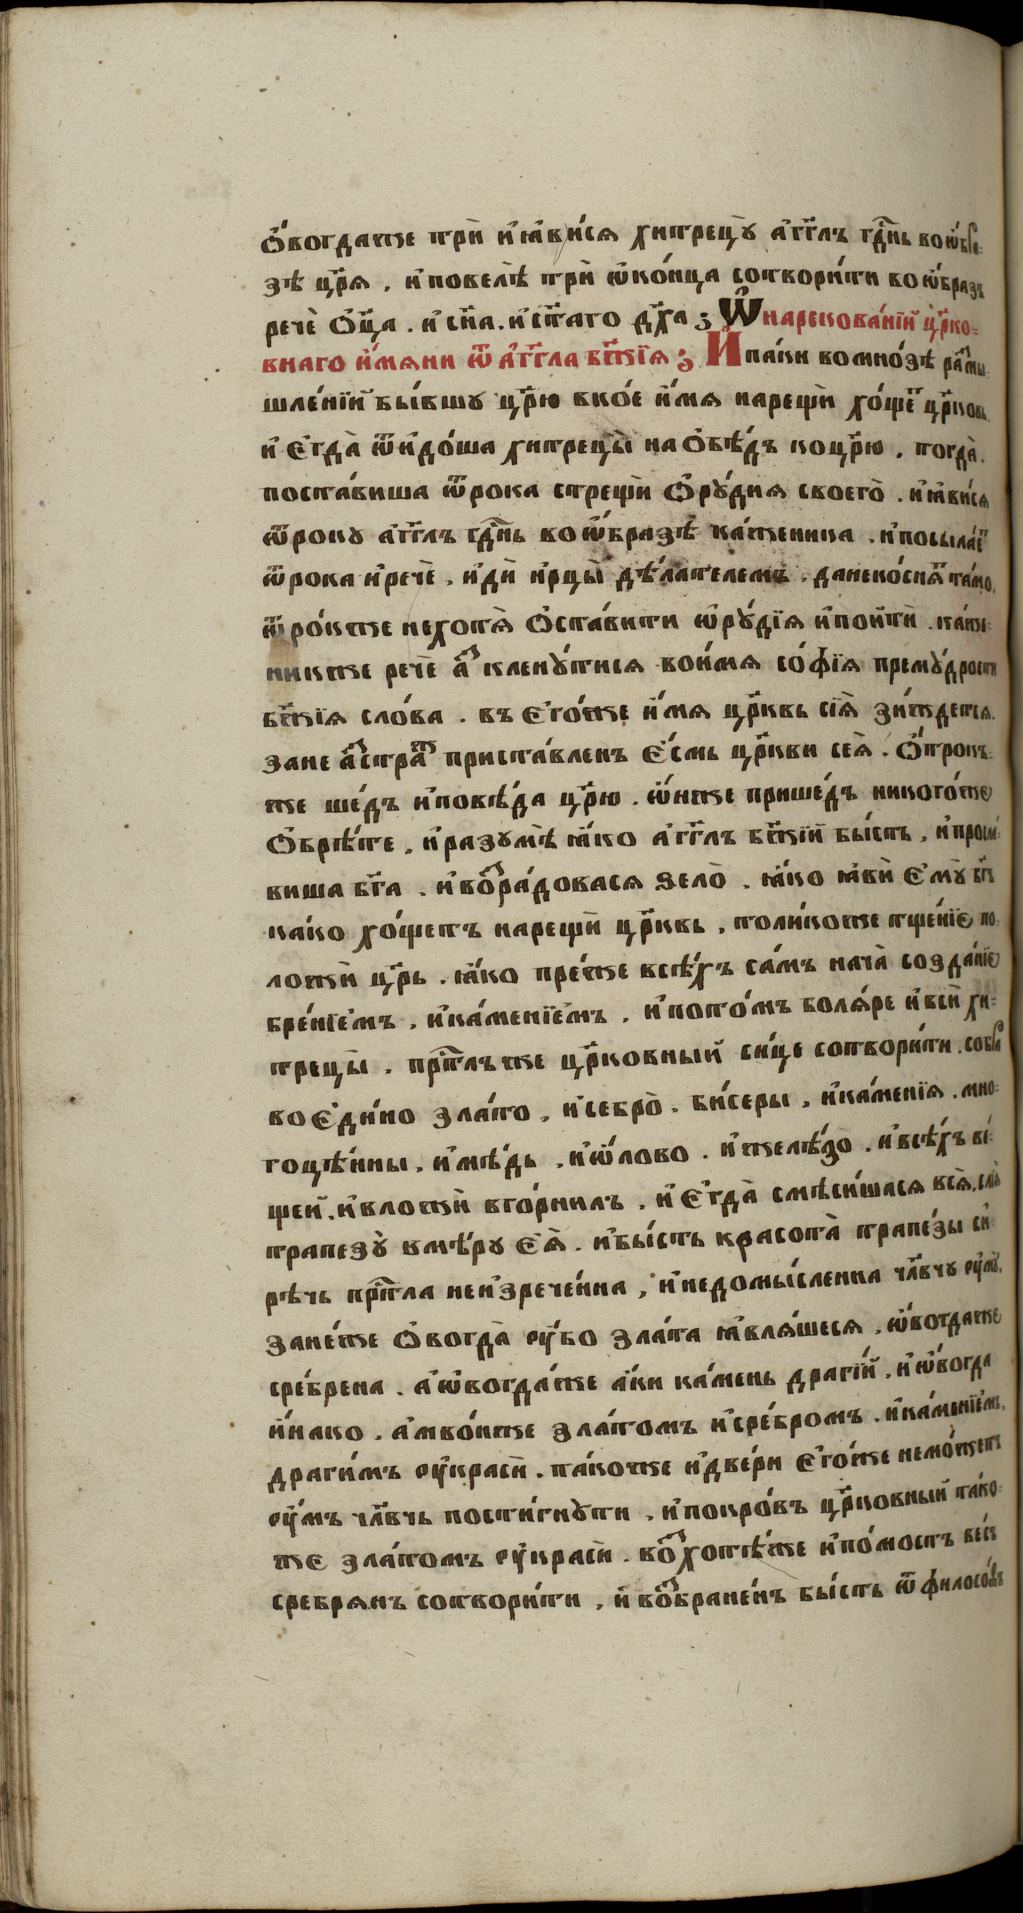 Ѻ҆вогдаже три̑ и҆ ꙗ҆ви́сѧ хитрецꙋ̀ а҆́гг҃лъ гдⷭ҇нь во ѡ҆бра-
зѣ цр҃ѧ . и҆ повелѣ̀ три̑ ѡ҆ко́нца сотвори́ти во ѡ҆́бразъ
речѐ Ѻ҆ц҃а . и҆ сн҃а . и҆ ст҃аго дх҃а ; Ѿ нарекова́нїй цр҃ко-
внаго и҆́мѧни ѿ а҆́гг҃ла бж҃їѧ ; И҆ па́ки во мно́зѣ раⷥмы-
шле́нїй бы́вшꙋ цр҃ю в ко́е и҆́мѧ нарещѝ хо́щеⷮ цр҃ковь
и҆ Е҆гда̀ ѿидо́ша хитрецы̀ на Ѻ҆бѣ́дъ ко цр҃ю . тогда̀ .
поста́виша ѿрока стрещѝ Ѻ҆рꙋ́дїѧ своего̀ . и҆ ꙗ҆ви́сѧ
ѿрокꙋ а҆́гг҃лъ гдⷭ҇нь во ѡ҆́бразѣ ка́женика . и҆ посыла́еⷮ
ѿрока и҆ речѐ . и҆дѝ и҆ рцы̀ дѣ́лателемъ . да не ко́снѧⷮ та́мо .
ѿро́кже не хотѧ̀ Ѻ҆ста́вити ѡ҆рꙋ́дїѧ и҆ пойтѝ . ка́же-
никже речѐ аⷥ кленꙋ́тисѧ во и́мѧ со́фїѧ премꙋ́дрости
бж҃їѧ сло́ва . въ Е҆го́же и҆́мѧ цр҃квь сїѧ̀ зи́ждетсѧ .
зане аⷥ страⷤ приста́вленъ Е҆́смь цр҃кви сеѧ̀ . Ѻ҆трокъ-
же ше́дъ и҆ повѣ́да цр҃ю . ѡ҆́нже прише́дъ никого́же
Ѻ҆брѣ́те . и҆ разꙋмѣ̀ ꙗ҆́ко а҆́гг҃лъ бж҃їй бы́сть . и҆ просла́-
виша бг҃а . и҆ воⷥра́довасѧ ѕело̀ . ꙗ҆́ко ꙗ҆вѝ Е҆мꙋ̀ бг҃ъ
ка́ко хо́щетъ нарещѝ цр҃квь . толи́коже тще́нїе по-
ложѝ цр҃ь . ꙗ҆́ко пре́же всѣ́хъ са́мъ нача̀ созда́нїе
бре́нїемъ . и҆ ка́менїемъ . и҆ пото́мъ болѧ́ре и҆ всѝ хи-
трецы̀ . прⷭ҇тлъже цр҃ковный си́це сотвори́ти . собра
во Е҆ди́но зла́то . и҆ сребро̀ . би́серы . и҆ ка́менїѧ . мно-
гоцѣ́нны . и҆ мѣ́дь . и҆ ѡ҆́лово . и҆ желѣ́зо . и҆ всѣ́хъ ве́-
щей . и҆ вложѝ в го́рнилъ . и҆ Е҆гда̀ смѣси́шасѧ всѧ̀ . слїѧ̀
трапезꙋ̀ в мѣ́рꙋ Е҆ѧ̀ . и҆ бы́сть красота̀ трапе́зы си́-
рѣчь прⷭ҇тла неи҆зрече́нна , и҆ недомы́сленна чл҃вчꙋ оу҆мꙋ̀ ,
зане́же Ѻ҆вогда̀ оу҆́бо зла́та ꙗ҆влѧ́шесѧ . ѡ҆вогдаже
сре́брена . а҆ ѡ҆вогда́же а҆́ки ка́мень драгі́й . и҆ ѡ҆́вогда
и҆́нако . а҆мво́нже зла́томъ и҆ сре́бромъ . и҆ ка́менїемъ .
драги́мъ оу҆красѝ . та́коже и҆ две́ри Е҆го́же не мо́жетъ
оу҆́мъ чл҃вчь пости́гнꙋти . и҆ покро́въ цр҃ковный тако-
же зла́томъ оу҆красѝ . воⷥхотѣ́же и҆ по́мостъ ве́сь
сребрѧнъ сотвори́ти , и҆ воⷥбране́нъ бы́сть ѿ филосо́фъ